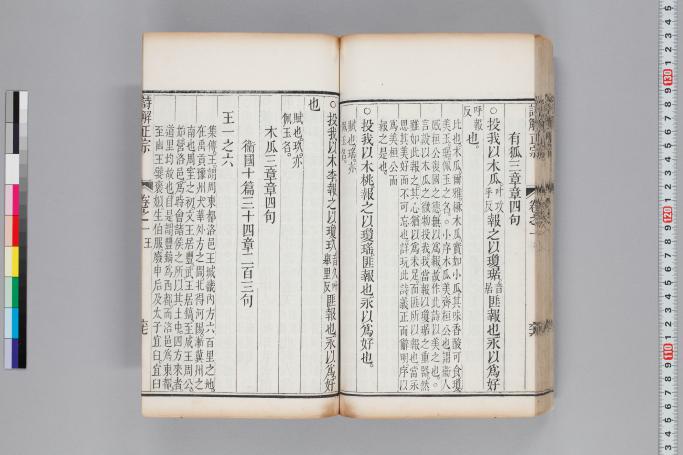 有狐三章章四句
○投我以木瓜叶攻乎反報之以瓊琚音居匪報也永以爲好
呼報反也。
比也木瓜爾雅楙木瓜實如小瓜其味香酸可食瓊
美玉琚佩玉之名。小序木瓜美齊桓公也謂衞人
言設以木瓜之微物投我我當報以瓊琚之重器然
雖如此報之其心猶以爲未足而匪所以報也當永
思其美好而不可忘也詳玩此詩義正而辭明序以
爲美桓公而
報之是也。
○投我以木桃報之以瓊瑤匪報也永以爲好也。
賦也瑤亦
佩玉名。
○投我以木李報之以瓊玖音久叶舉里反匪報也永以爲好
也
賦也玖亦
佩玉名。
木瓜三章章四句
衞國十篇三十四章二百三句
王一之六
集傳王謂周東都洛邑王城畿內方六百里之地。
在禹貢豫州大華外方之間北得河陽漸冀州之
南也周室之初文王居豐武王居鎬至成王周公。
始營洛邑爲時會諸侯之所以其土中四方來者
道里均故也自是謂豐鎬爲西都而洛邑爲東都
至幽王嬖褒姒生伯服廢申后及太子宜臼宜臼
詩解正宗
卷之一
王